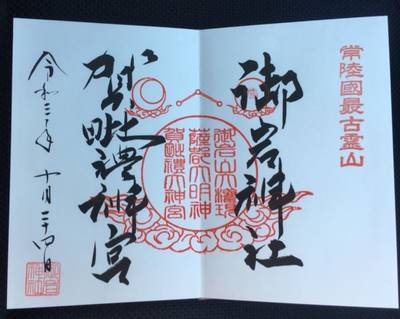 常陸國最古霊山
御岩神社
御岩山大権現
薩都大明神
賀毗禮大神宮
賀毗禮神宮
令和三年 十月二十四日